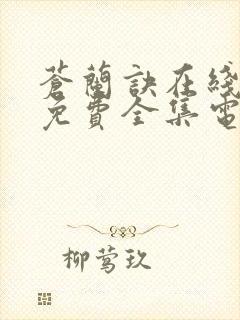 蒼蘭訣在綫
免費全集電
柳莺玖